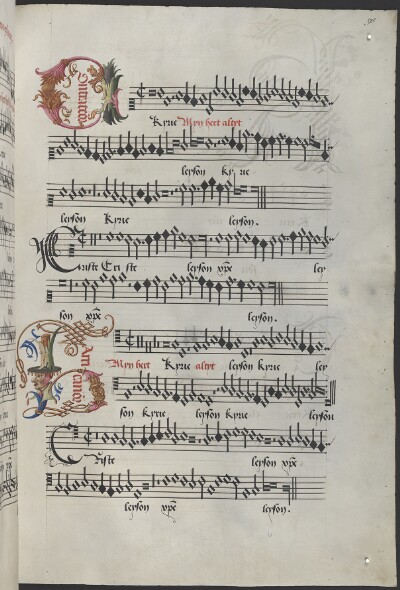 Contratenor
Kyrie Myn hert altyt
leyson Ky rie
leyson Kyrie leyson.
Criste Cri ste leyson xpē ley
son xpē leyson.
Tenor
Myn hert Kyrie altyt leyson kyrie ley
son kyrie leyson kyrie leyson
Criste leyson xpē
leyson xpē leyson.